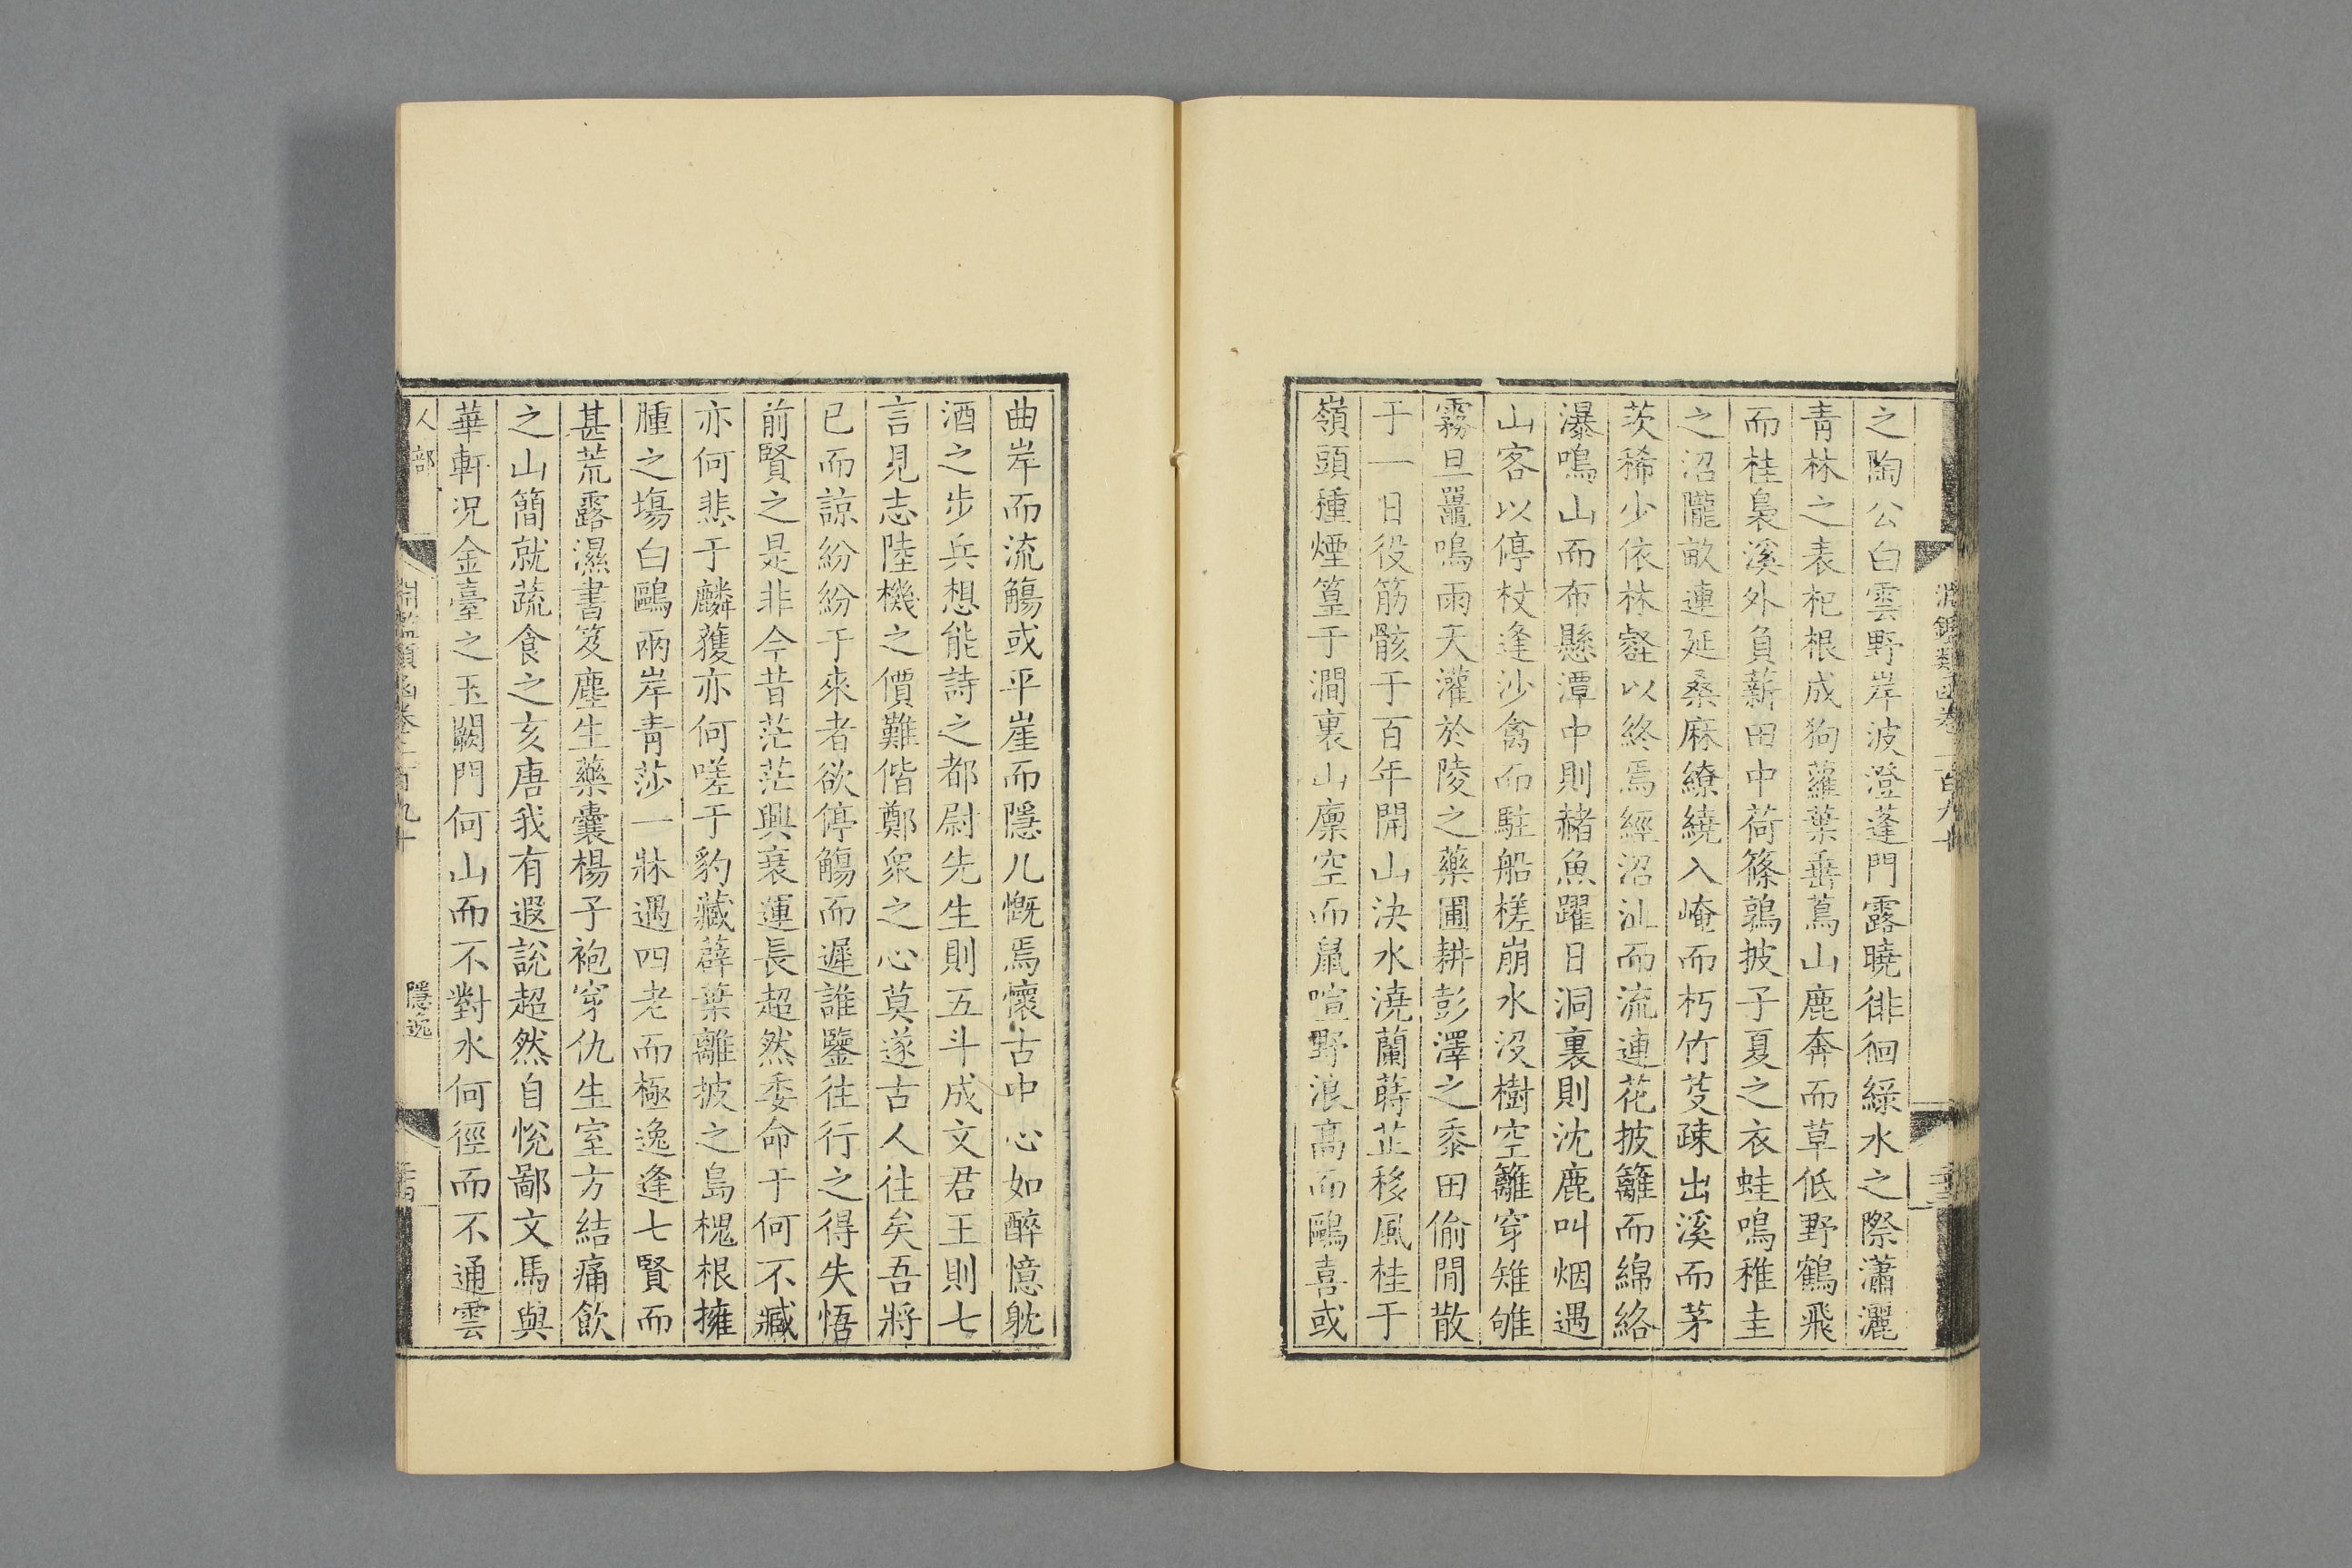 之陶公白雲野岸波澄蓬門露曉徘徊綵水之際瀟灑
青林之表杞根成狗蘿葉垂蔦山鹿奔而草低野鶴飛
而桂裊溪外負薪田中荷篠鶉披子夏之衣蛙鳴稚圭
之沼隴畝連延桑麻繚繞入崦而朽竹芟疎出溪而茅
茨稀少依林壑以終焉經沼汕而流連花披籬而綿絡
瀑鳴山而布懸潭中則赭魚躍日洞裏則沈鹿叫烟遇
山客以停杖逢沙禽而駐船槎崩水沒樹空籬穿雉雊
霧旦鼉鳴雨天灌於陵之藥圃耕彭澤之黍田偷閒散
于一日役筋骸于百年開山決水澆蘭蒔芷移風桂于
嶺頭種煙篁于澗裏山廩空而鼠喧野浪高而鷗喜或
淵鑑類函卷二百九十
曲岸而流觴或平崖而隱几慨焉懷古中心如醉憶躭
酒之步兵想能詩之都尉先生則五斗成文君王則七
言見志陸機之價難偕鄭衆之心莫遂古人往矣吾將
已而諒紛紛于來者欲停觴而遲誰鑒往行之得失悟
前賢之是非今昔茫茫興衰運長超然委命于何不臧
亦何悲于麟獲亦何嗟于豹藏薜葉離披之島槐根擁
腫之塲白鷗兩岸青莎一牀遇四老而極逸逢七賢而
甚荒露濕書笈塵生藥囊楊子袍穿仇生室方結痛飲
之山簡就蔬食之亥唐我有遐說超然自悅鄙文馬與
華軒況金臺之玉闕門何山而不對水何徑而不通雲
人部
淵鑑類函卷二百九十
隱逸